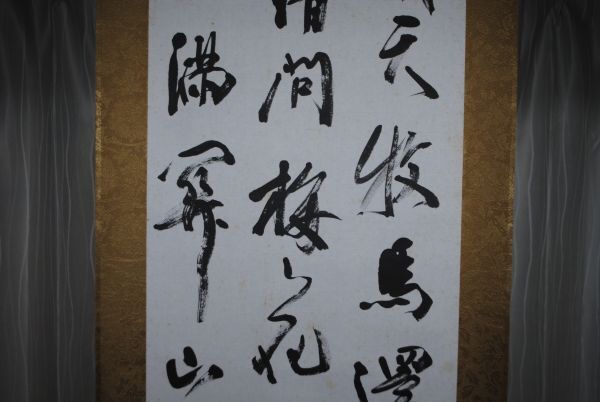 天牧馬還
借問梅花
滿關山